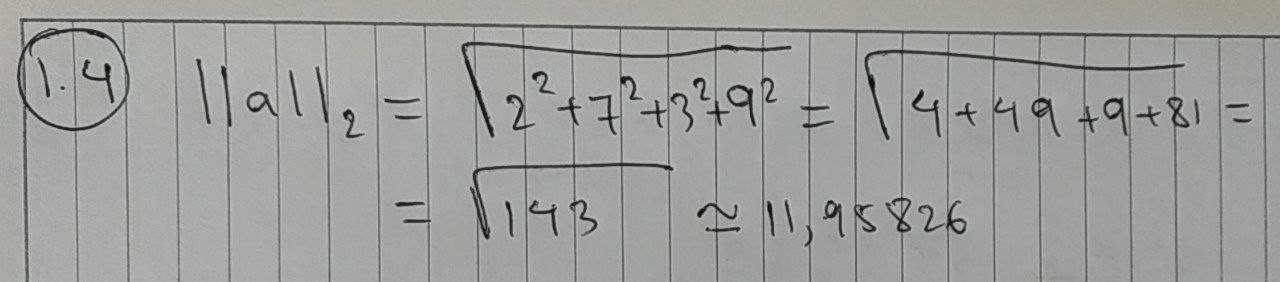 1.4 ||a||₂ = √(2² + 7² + 3² + 9²) = √(4 + 49 + 9 + 81) =
= √143 ≃ 11,95826